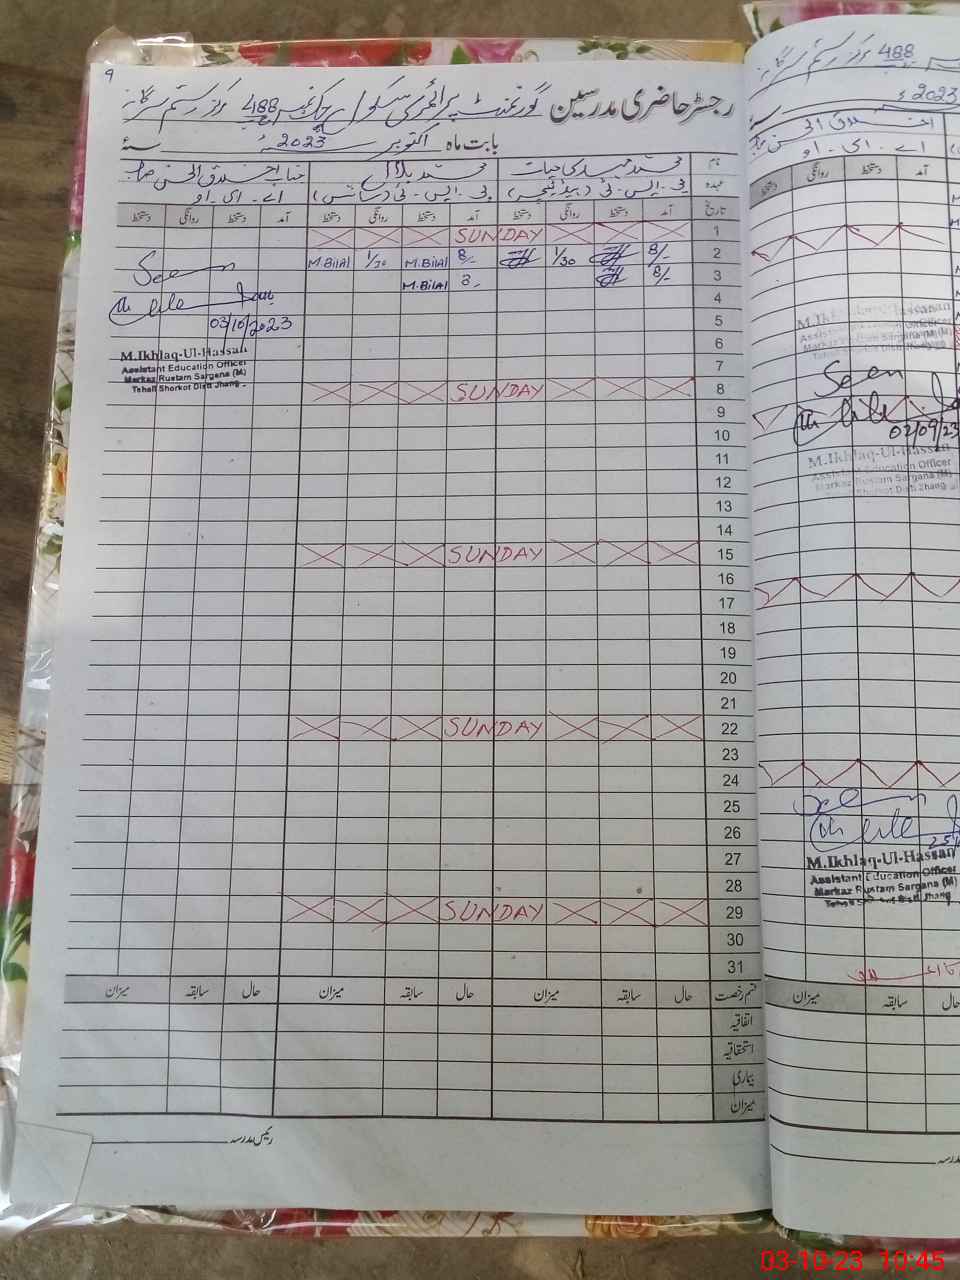 9
رجسٹر حاضری مدرسین گورنمنٹ پرائمری سکول چک نمبر 488 مرکز رستم سرگانہ
بابت ماہ اکتوبر 2023ء
نام محمد حیات محمد بلال جناب اخلاق الحسن صاحب
عہدہ پی۔ایس۔ٹی (ہیڈ ٹیچر) پی۔ایس۔ٹی (سائنس) اے۔ای۔او
تاریخ آمد دستخط روانگی دستخط آمد دستخط روانگی دستخط آمد دستخط روانگی دستخط
1 SUNDAY
2 8/- 1/30 8/- M.Bilal 1/30 M.Bilal
3 8/- 8/- M.Bilal
Seen
4
5
03/10/2023
6
7
M.Ikhlaq-Ul-Hassan
Assistant Education Officer
Markaz Rustam Sargana (M)
Tehsil Shorkot Distt Jhang
8 SUNDAY
9
10
11
12
13
14
15 SUNDAY
16
17
18
19
20
21
22 SUNDAY
23
24
25
26
27
28
29 SUNDAY
30
31
قسم رخصت حال سابقہ میزان حال سابقہ میزان حال سابقہ میزان
اتفاقیہ
استحقاقیہ
بیماری
میزان
رئیس مدرسہ
488 مرکز رستم سرگانہ
2023ء
اخلاق الحسن
اے۔ای۔او
آمد دستخط روانگی دستخط
M.Ikhlaq-Ul-Hassan
Assistant Education Officer
Markaz Rustam Sargana (M)
Seen
02/09/23
M.Ikhlaq-Ul-Hassan
Assistant Education Officer
Markaz Rustam Sargana (M)
Shorkot Distt Jhang
Seen
M.Ikhlaq-Ul-Hassan
Assistant Education Officer
Markaz Rustam Sargana (M)
Distt Jhang
حال سابقہ میزان
03-10-23 10:45